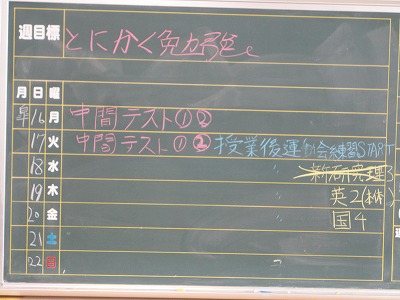 週目標 とにかく勉強
月 日 曜
16 月 中間テスト①②
17 火 中間テスト①② 授業後運 会練習START
18 水 〃
19 木 〃 英2
20 金 〃 国4
21 土
22 日